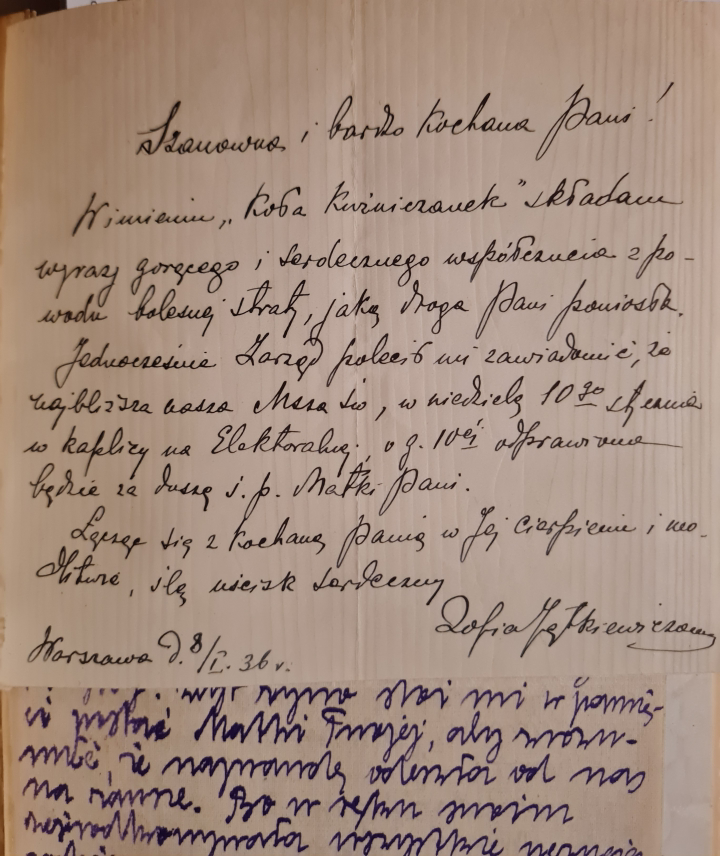 Szanowna i bardzo Kochana Pani!
W imieniu „Koła Kuźniczanek” składam
wyrazy gorącego i serdecznego współczucia z po-
wodu bolesnej straty, jaką droga Pani poniosła.
Jednocześnie Zarząd polecił mi zawiadomić, że
najbliższa nasza Msza św, w niedzielę 10go stycznia
w kaplicy na Elektoralnej, o g. 10ej odprawiona
będzie za duszę ś. p. Matki Pani.
Łącząc się z Kochaną Panią w Jej cierpieniu i mo-
dlitwie, ślę uścisk serdeczny
Zofia
Warszawa d. 8/I. 36 r.
żywo stoi mi w pamię-
ci postać Matki Twojej, aby zrozu-
mieć, że naprawdę odeszła od nas
na zawsze. Bo w ręku swoim
wszystkie